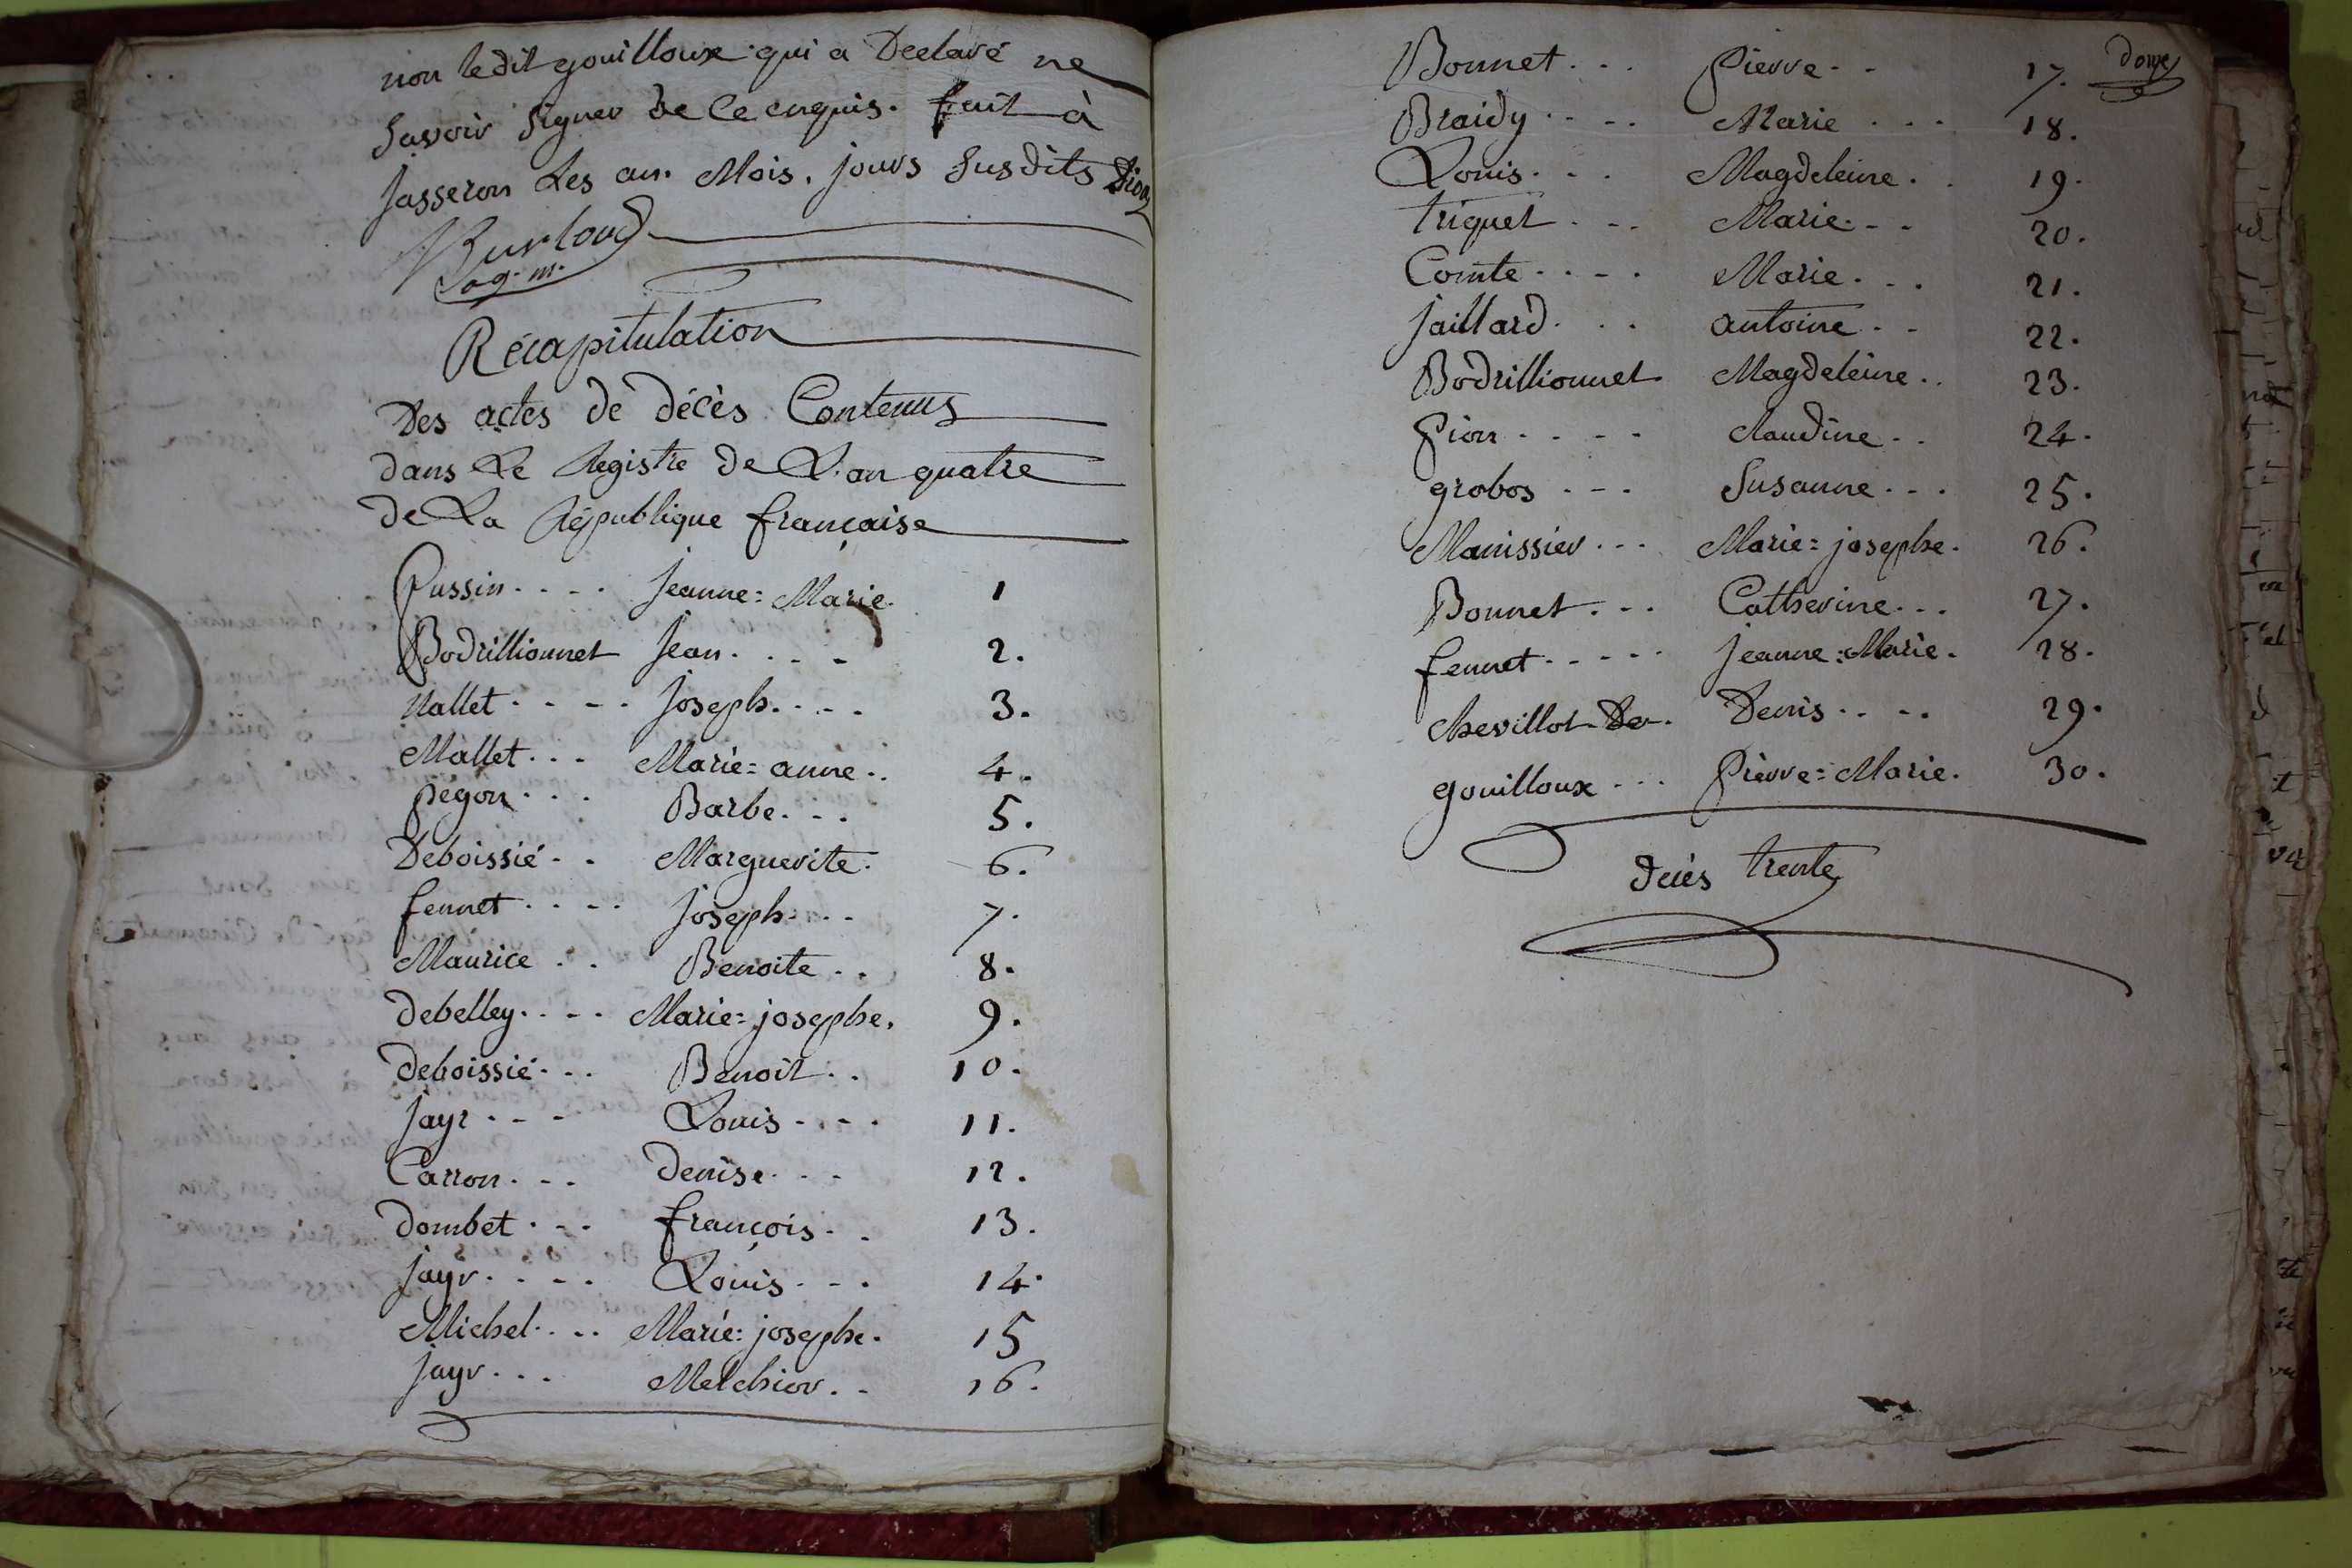 non ledit gouilloux qui a Declaré ne
Savoir Signer de Ce enquis. fait à
Jasseron Les an. Mois. jours Susdits
Burloud
ag. m.
Récapitulation
Des actes de décès Contenus
dans Le Registre de L'an quatre
de La République française
Pussin.... Jeanne=Marie. 1
Bodrillionnet Jean.... 2.
Nallet.... Joseph.... 3.
Mallet... Marie=anne.. 4.
Pegon... Barbe... 5.
Deboissié.. Marguerite. 6.
fennet.... Joseph... 7.
Maurice.. Benoite.. 8.
Debelley.... Marie=josephe. 9.
Deboissié... Benoit.. 10.
Jayr... Louis.... 11.
Carron... Denise... 12.
Dombet... françois.. 13.
Jayr.... Louis... 14.
Michel.... Marie=josephe. 15
Jayr... Melchior.. 16.
douze
Bonnet... Pierre.. 17.
Braidy.... Marie... 18.
Louis... Magdeleine.. 19.
triquet... Marie.. 20.
Comte.... Marie... 21.
Jaillard... antoine.. 22.
Bodrillionnet Magdeleine.. 23.
Pion.... Claudine.. 24.
grobos... Susanne... 25.
Manissier... Marie=josephe. 26.
Bonnet... Catherine... 27.
fennet..... Jeanne=Marie. 28.
Chevillot-De. Denis.... 29.
gouilloux... Pierre=Marie. 30.
décès trente